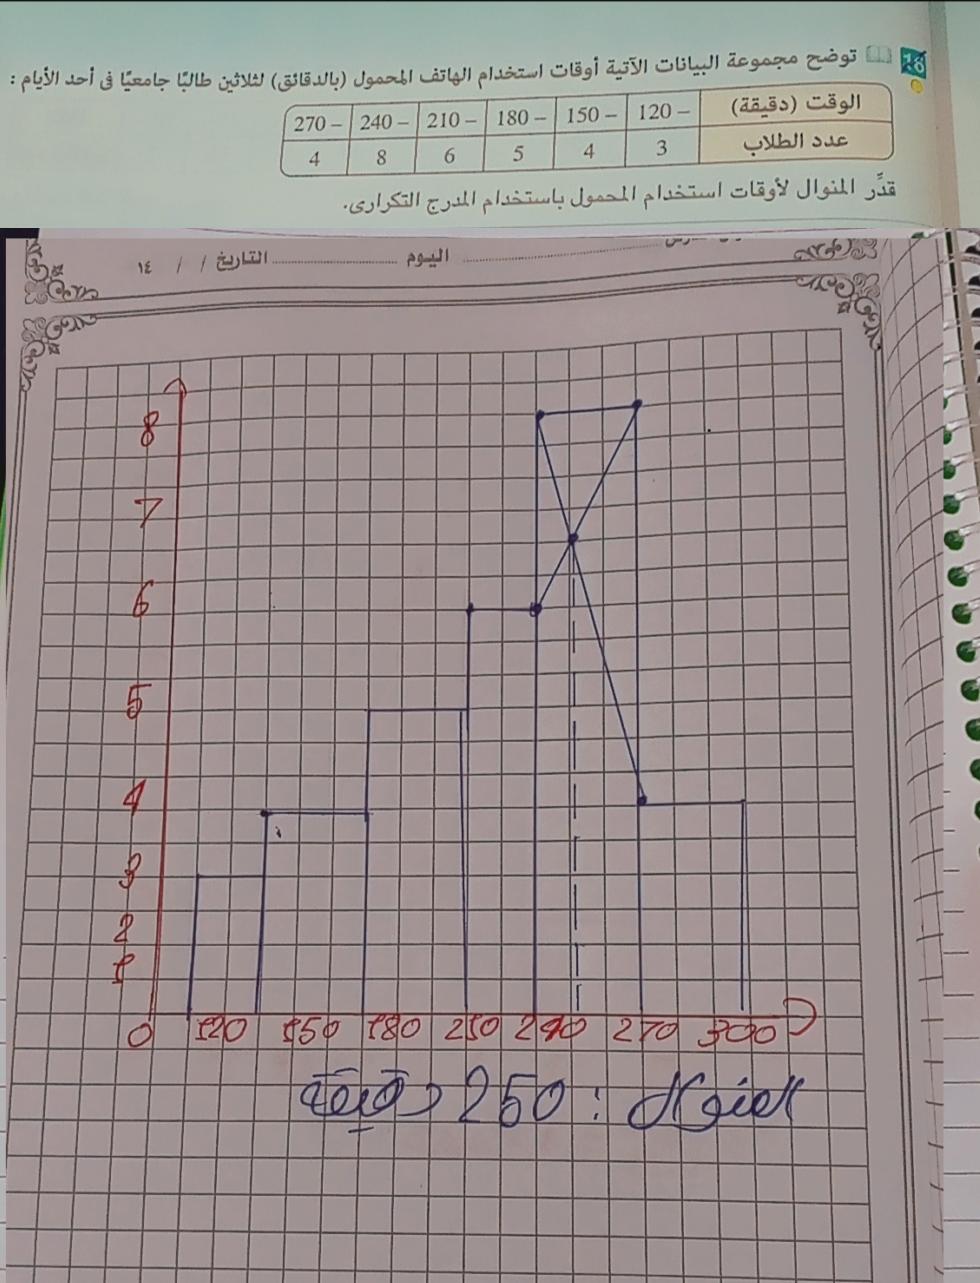 16 توضح مجموعة البيانات الآتية أوقات استخدام الهاتف المحمول (بالدقائق) لثلاثين طالبًا جامعيًا فى أحد الأيام :
الوقت (دقيقة) 120 – 150 – 180 – 210 – 240 – 270 –
عدد الطلاب 3 4 5 6 8 4
قدِّر المنوال لأوقات استخدام المحمول باستخدام المدرج التكرارى.
اليوم التاريخ / / ١٤
8
7
6
5
4
3
2
1
0 120 150 180 210 240 270 300
المنوال : 250 دقيقة